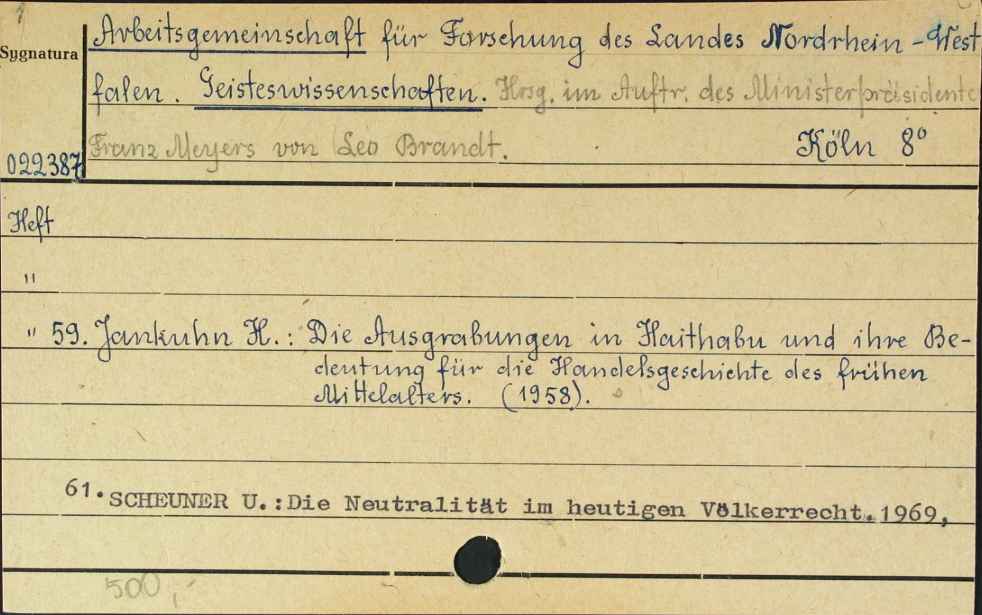 Arbeitsgemeinschaft für Forschung des Landes Nordrhein-West
Sygnatura
falen. Geisteswissenschaften. Hrsg. im Auftr. des Ministerpräsidente
Franz Meyers von Leo Brandt. Köln 8°
022387
Heft
"
" 59. Jankuhn H.: Die Ausgrabungen in Haithabu und ihre Be-
deutung für die Handelsgeschichte des frühen
Mittelalters. (1958).
61. SCHEUNER U.: Die Neutralität im heutigen Völkerrecht. 1969,
500,-